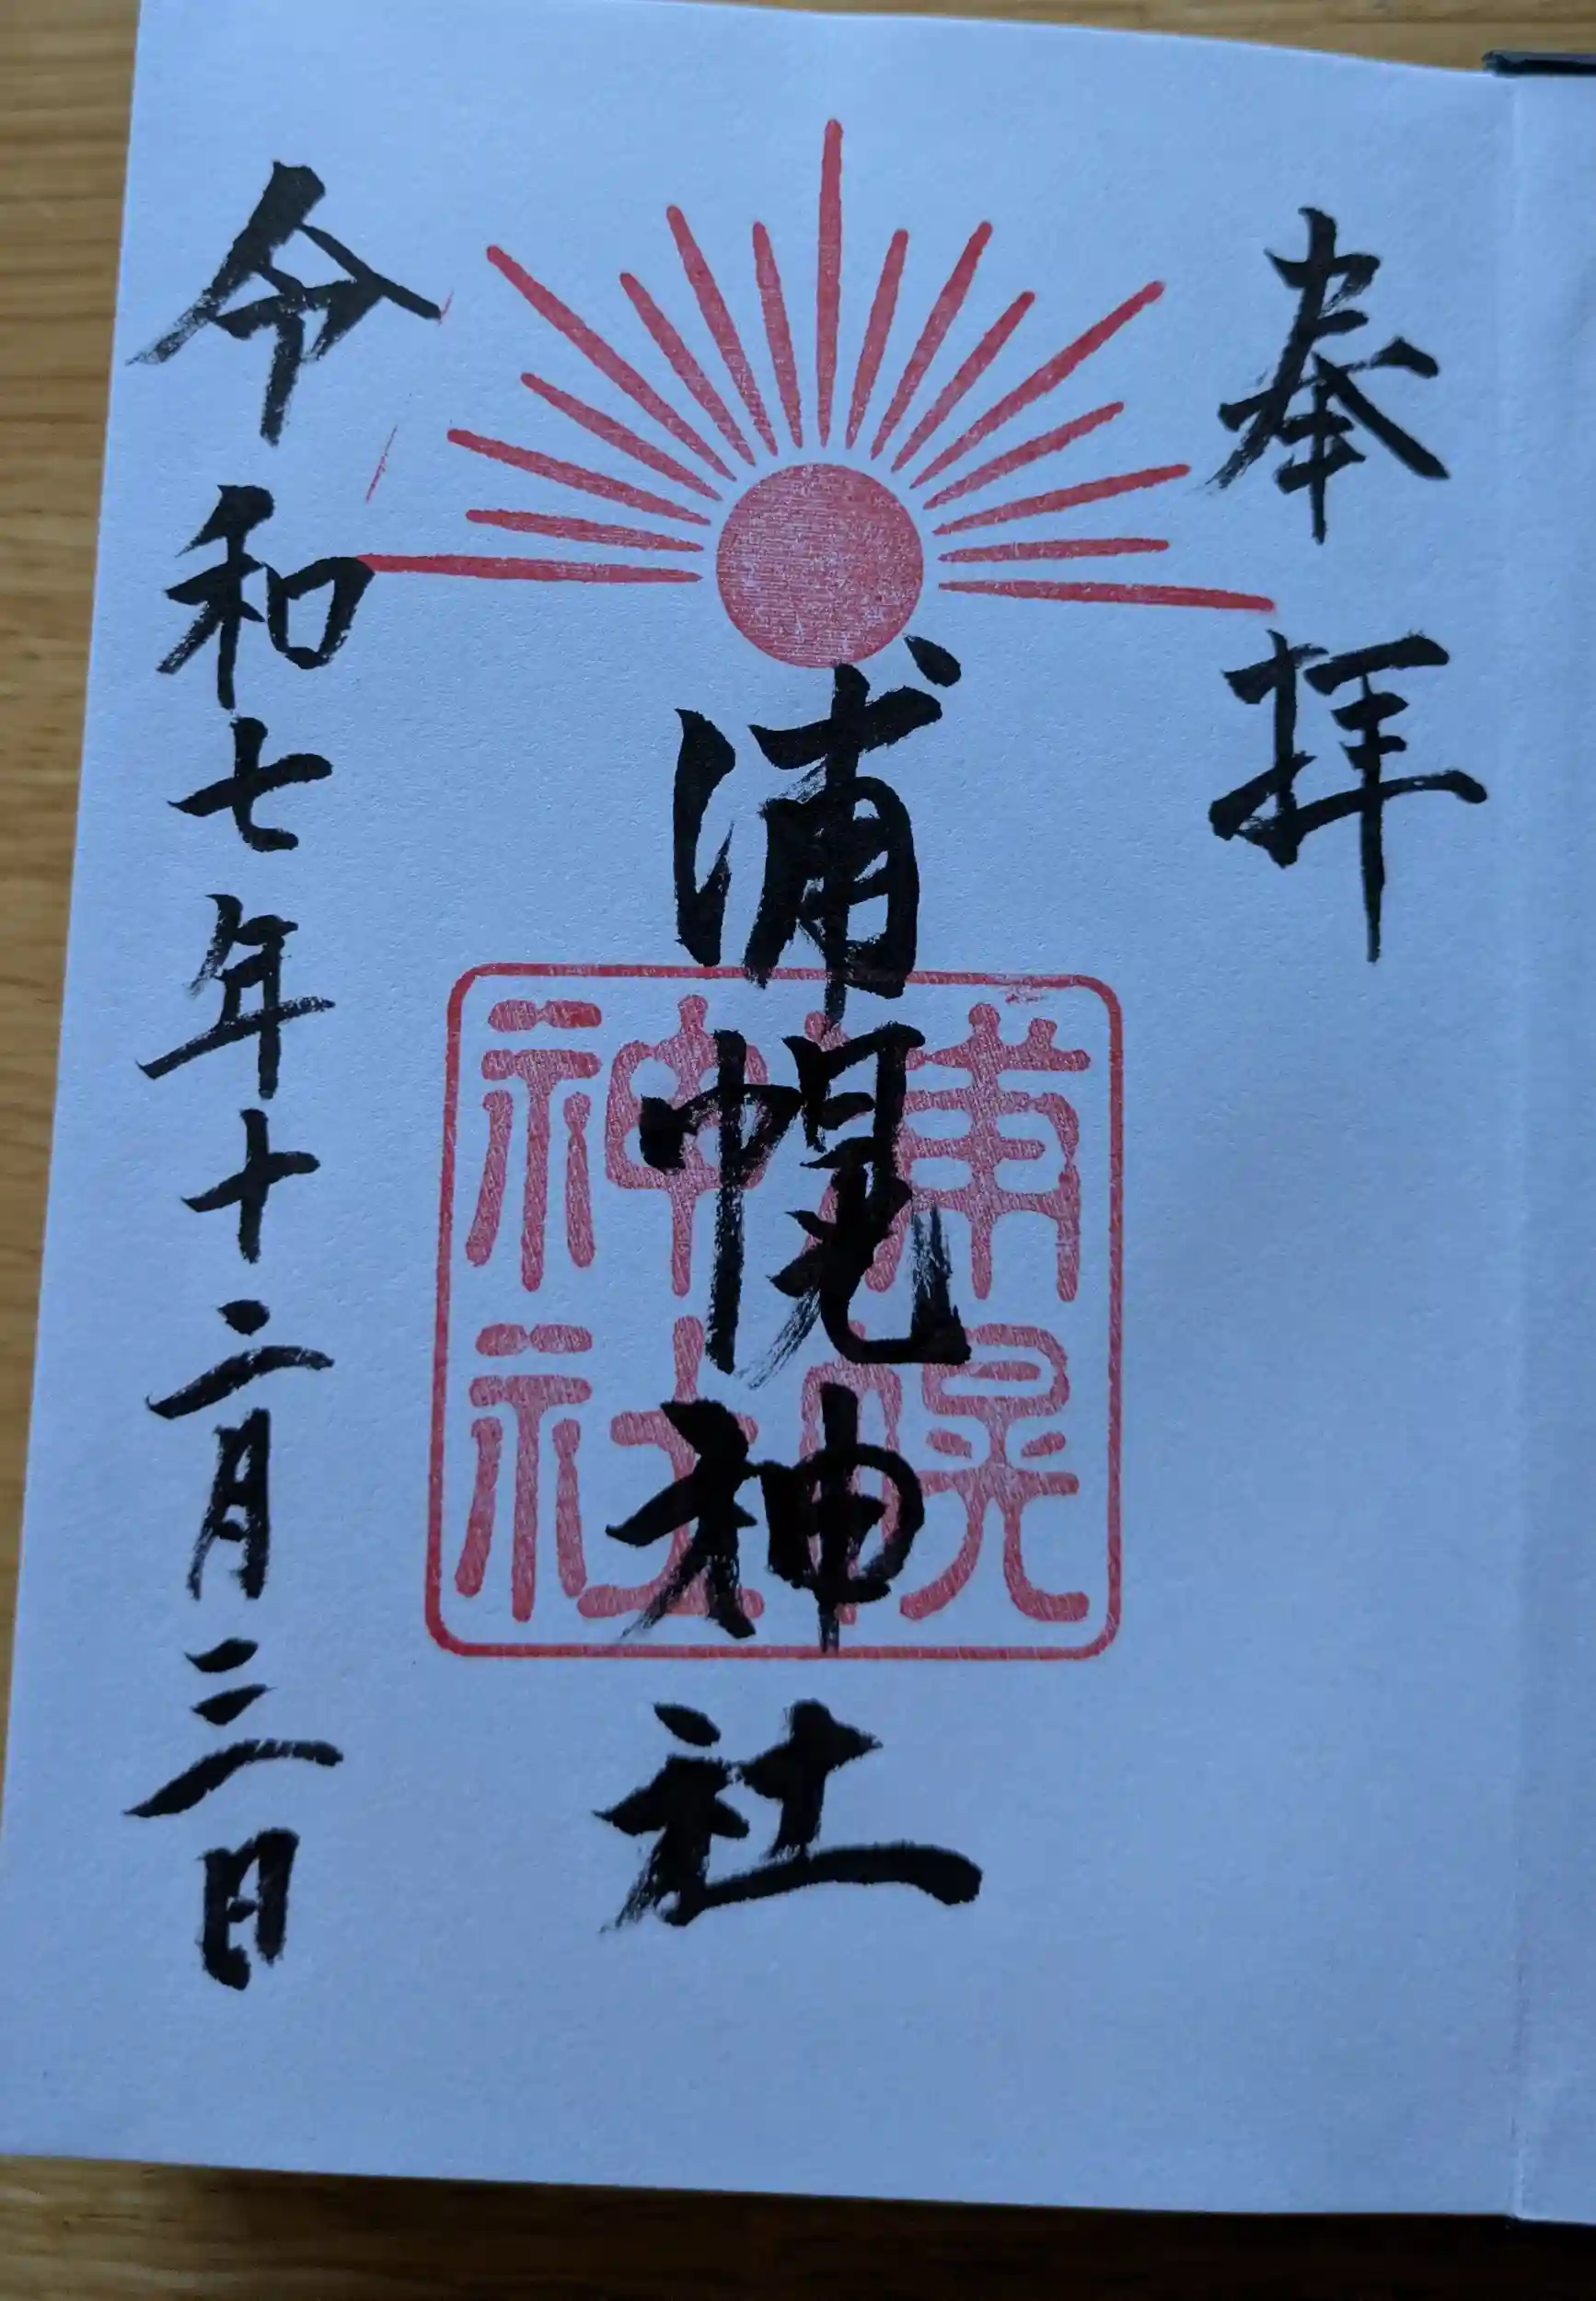 奉拝
浦幌神社
浦幌
神社
令和七年十二月三日